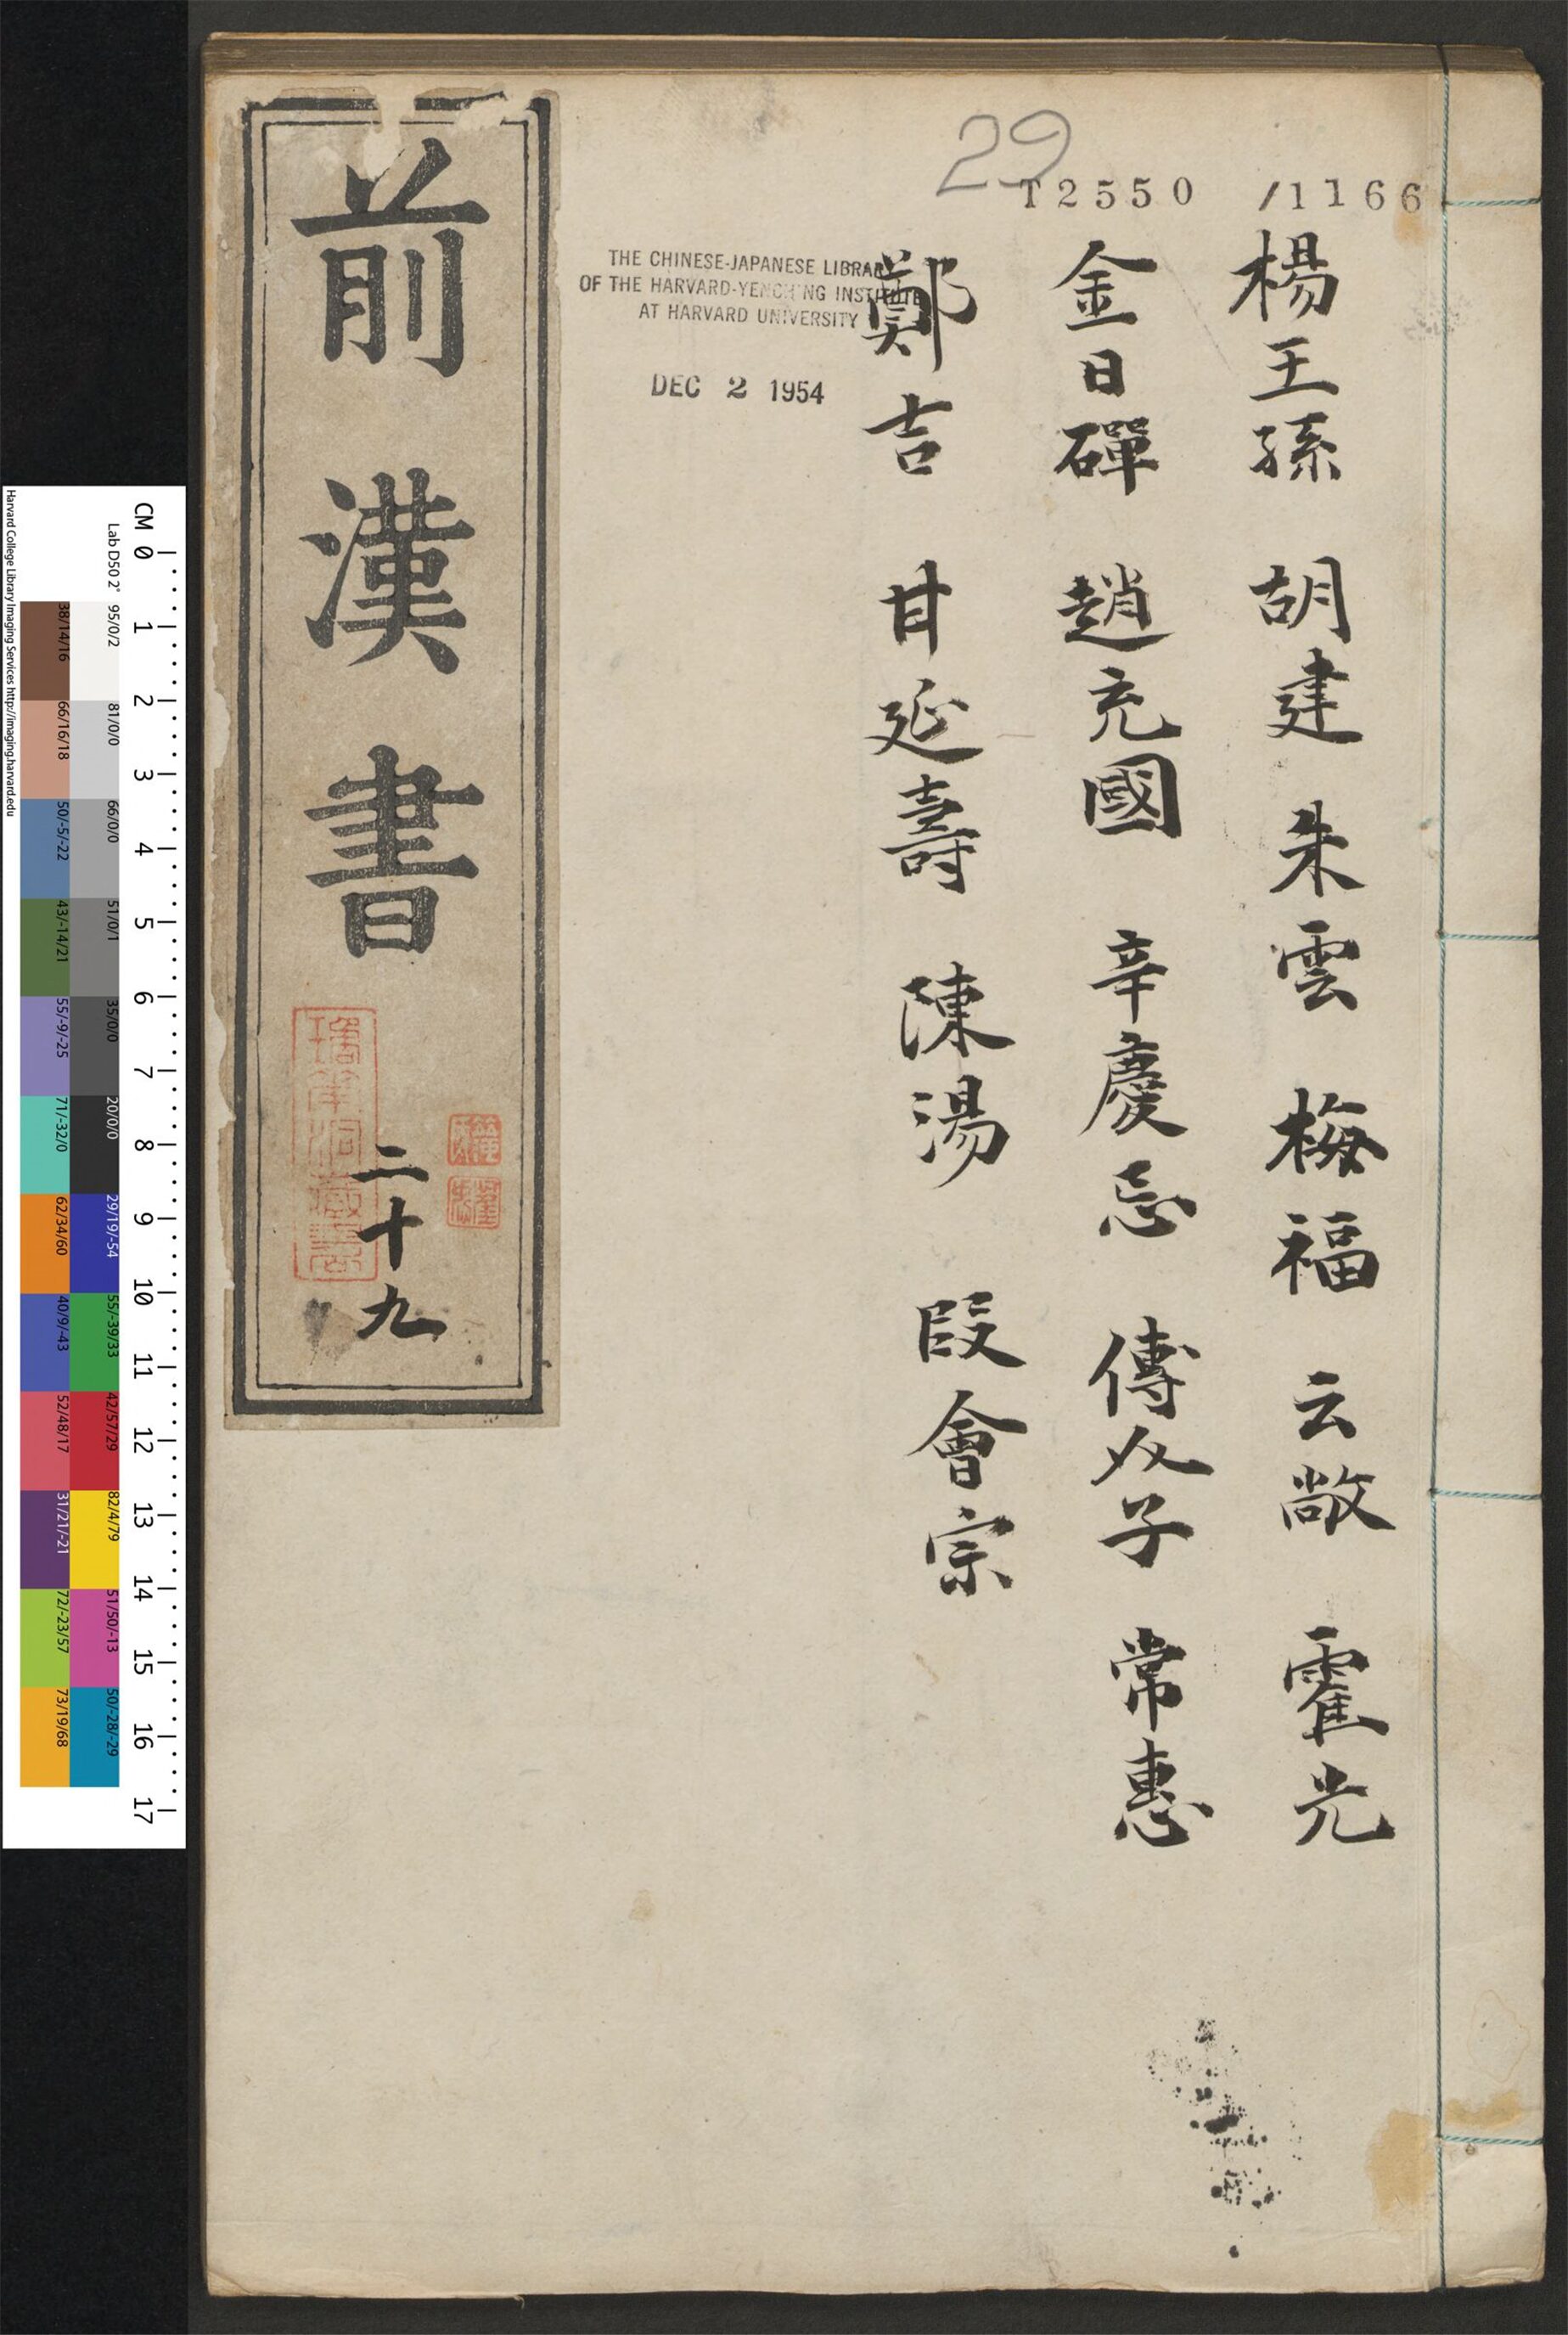 T2550 /1166
29
楊王孫 胡建 朱雲 梅福 云敞 霍光
金日磾 趙充國 辛慶忌 傅介子 常惠
鄭吉 甘延壽 陳湯 段會宗
THE CHINESE-JAPANESE LIBRARY
OF THE HARVARD-YENCHING INSTITUTE
AT HARVARD UNIVERSITY
DEC 2 1954
前漢書
二十九
CM 0 1 2 3 4 5 6 7 8 9 10 11 12 13 14 15 16 17
Lab D50 2° 95/0/2 81/0/0 66/0/0 51/0/1 35/0/0 20/0/0 29/19/-54 55/-39/33 42/57/29 82/4/79 51/50/-13 50/-28/-29
38/14/16 66/16/18 50/-5/-22 43/-14/21 55/-9/-25 71/-32/0 62/34/60 40/9/-43 52/48/17 31/21/-21 72/-23/57 73/19/68
Harvard College Library Imaging Services http://imaging.harvard.edu